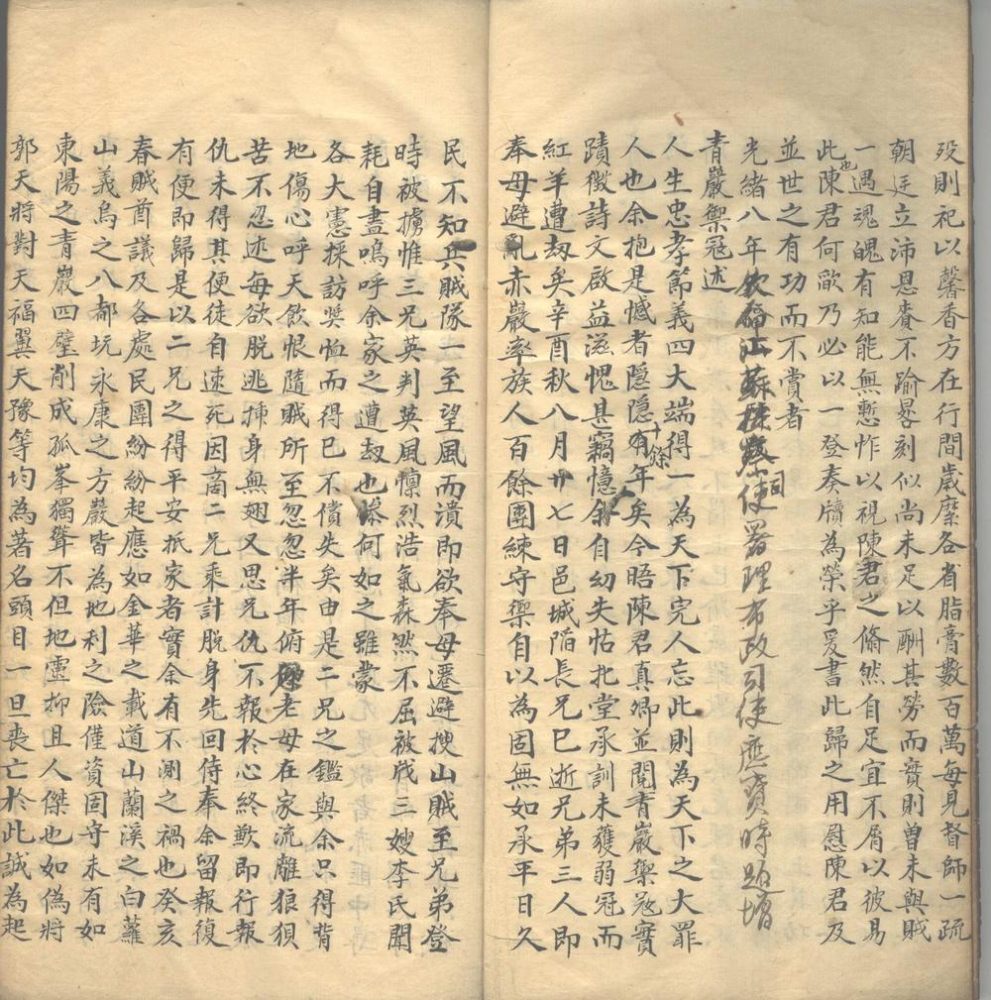 歿則祀以馨香方在行間歲縻各省脂膏數百萬每見督師一疏
朝廷立沛恩賚不踰晷刻似尚未足以酬其勞而實則曾未與賊
一遇魂魄有知能無慙怍以視陳君之翛然自足宜不屑以彼易
此也陳君何歉乃必以一登奏牘為榮乎爰書此歸之用慰陳君及
並世之有功而不賞者
光緒八年欽命江蘇按察使司署理布政司使應寶時題增
青巖禦冦述
人生忠孝節義四大端得一為天下完人忘此則為天下之大罪
人也余抱是憾者隱隱十有餘年矣今晤陳君真鄉並閱青巖禦冦實
蹟徵詩文啟益滋愧甚竊憶余自幼失怙北堂承訓未獲弱冠而
紅羊遭刼矣辛酉秋八月廿七日邑城陷長兄已逝兄弟三人即
奉母避亂赤巖率族人百餘團練守禦自以為固無如承平日久
民不知兵賊隊一至望風而潰即欲奉母遷避搜山賊至兄弟登
時被擄惟三兄英判英風懍烈浩氣森然不屈被戕三嫂李氏聞
耗自盡嗚呼余家之遭刼也何如之雖蒙
各大憲採訪奬恤而得已不償失矣由是二兄之鑑與余只得背
地傷心呼天飲恨隨賊所至忽忽半年俯老母在家流離狼狽
苦不忍述每欲脫逃插身無翅又思兄仇不報於心終歉即行報
仇未得其便徒自速死因商二兄乘計脫身先回侍奉余留報復
有便即歸是以二兄之得平安抵家者實余有不測之禍也癸亥
春賊酋議及各處民團紛紛起應如金華之載道山蘭溪之白蘿
山義烏之八都坑永康之方巖皆為地利之險僅資固守未有如
東陽之青巖四壁削成孤峯獨聳不但地靈抑且人傑也如偽將
郭天將對天福翼天豫等均為著名頭目一旦喪亡於此誠為起